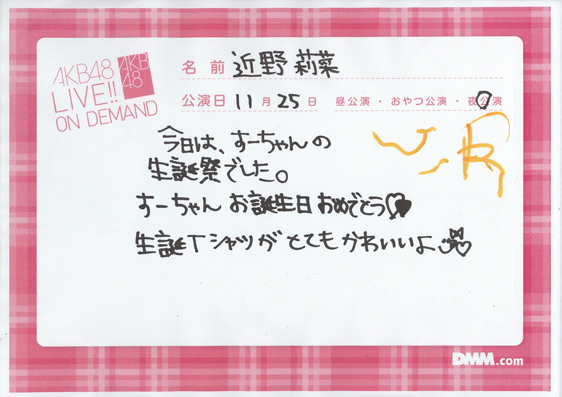 AKB48
LIVE!!
ON DEMAND
AKB
48
名前 近野莉菜
公演日 11月25日 昼公演・おやつ公演・夜公演
今日は、すーちゃんの
生誕祭でした。
すーちゃん お誕生日おめでとう
生誕Tシャツがとてもかわいいよ
DMM.com